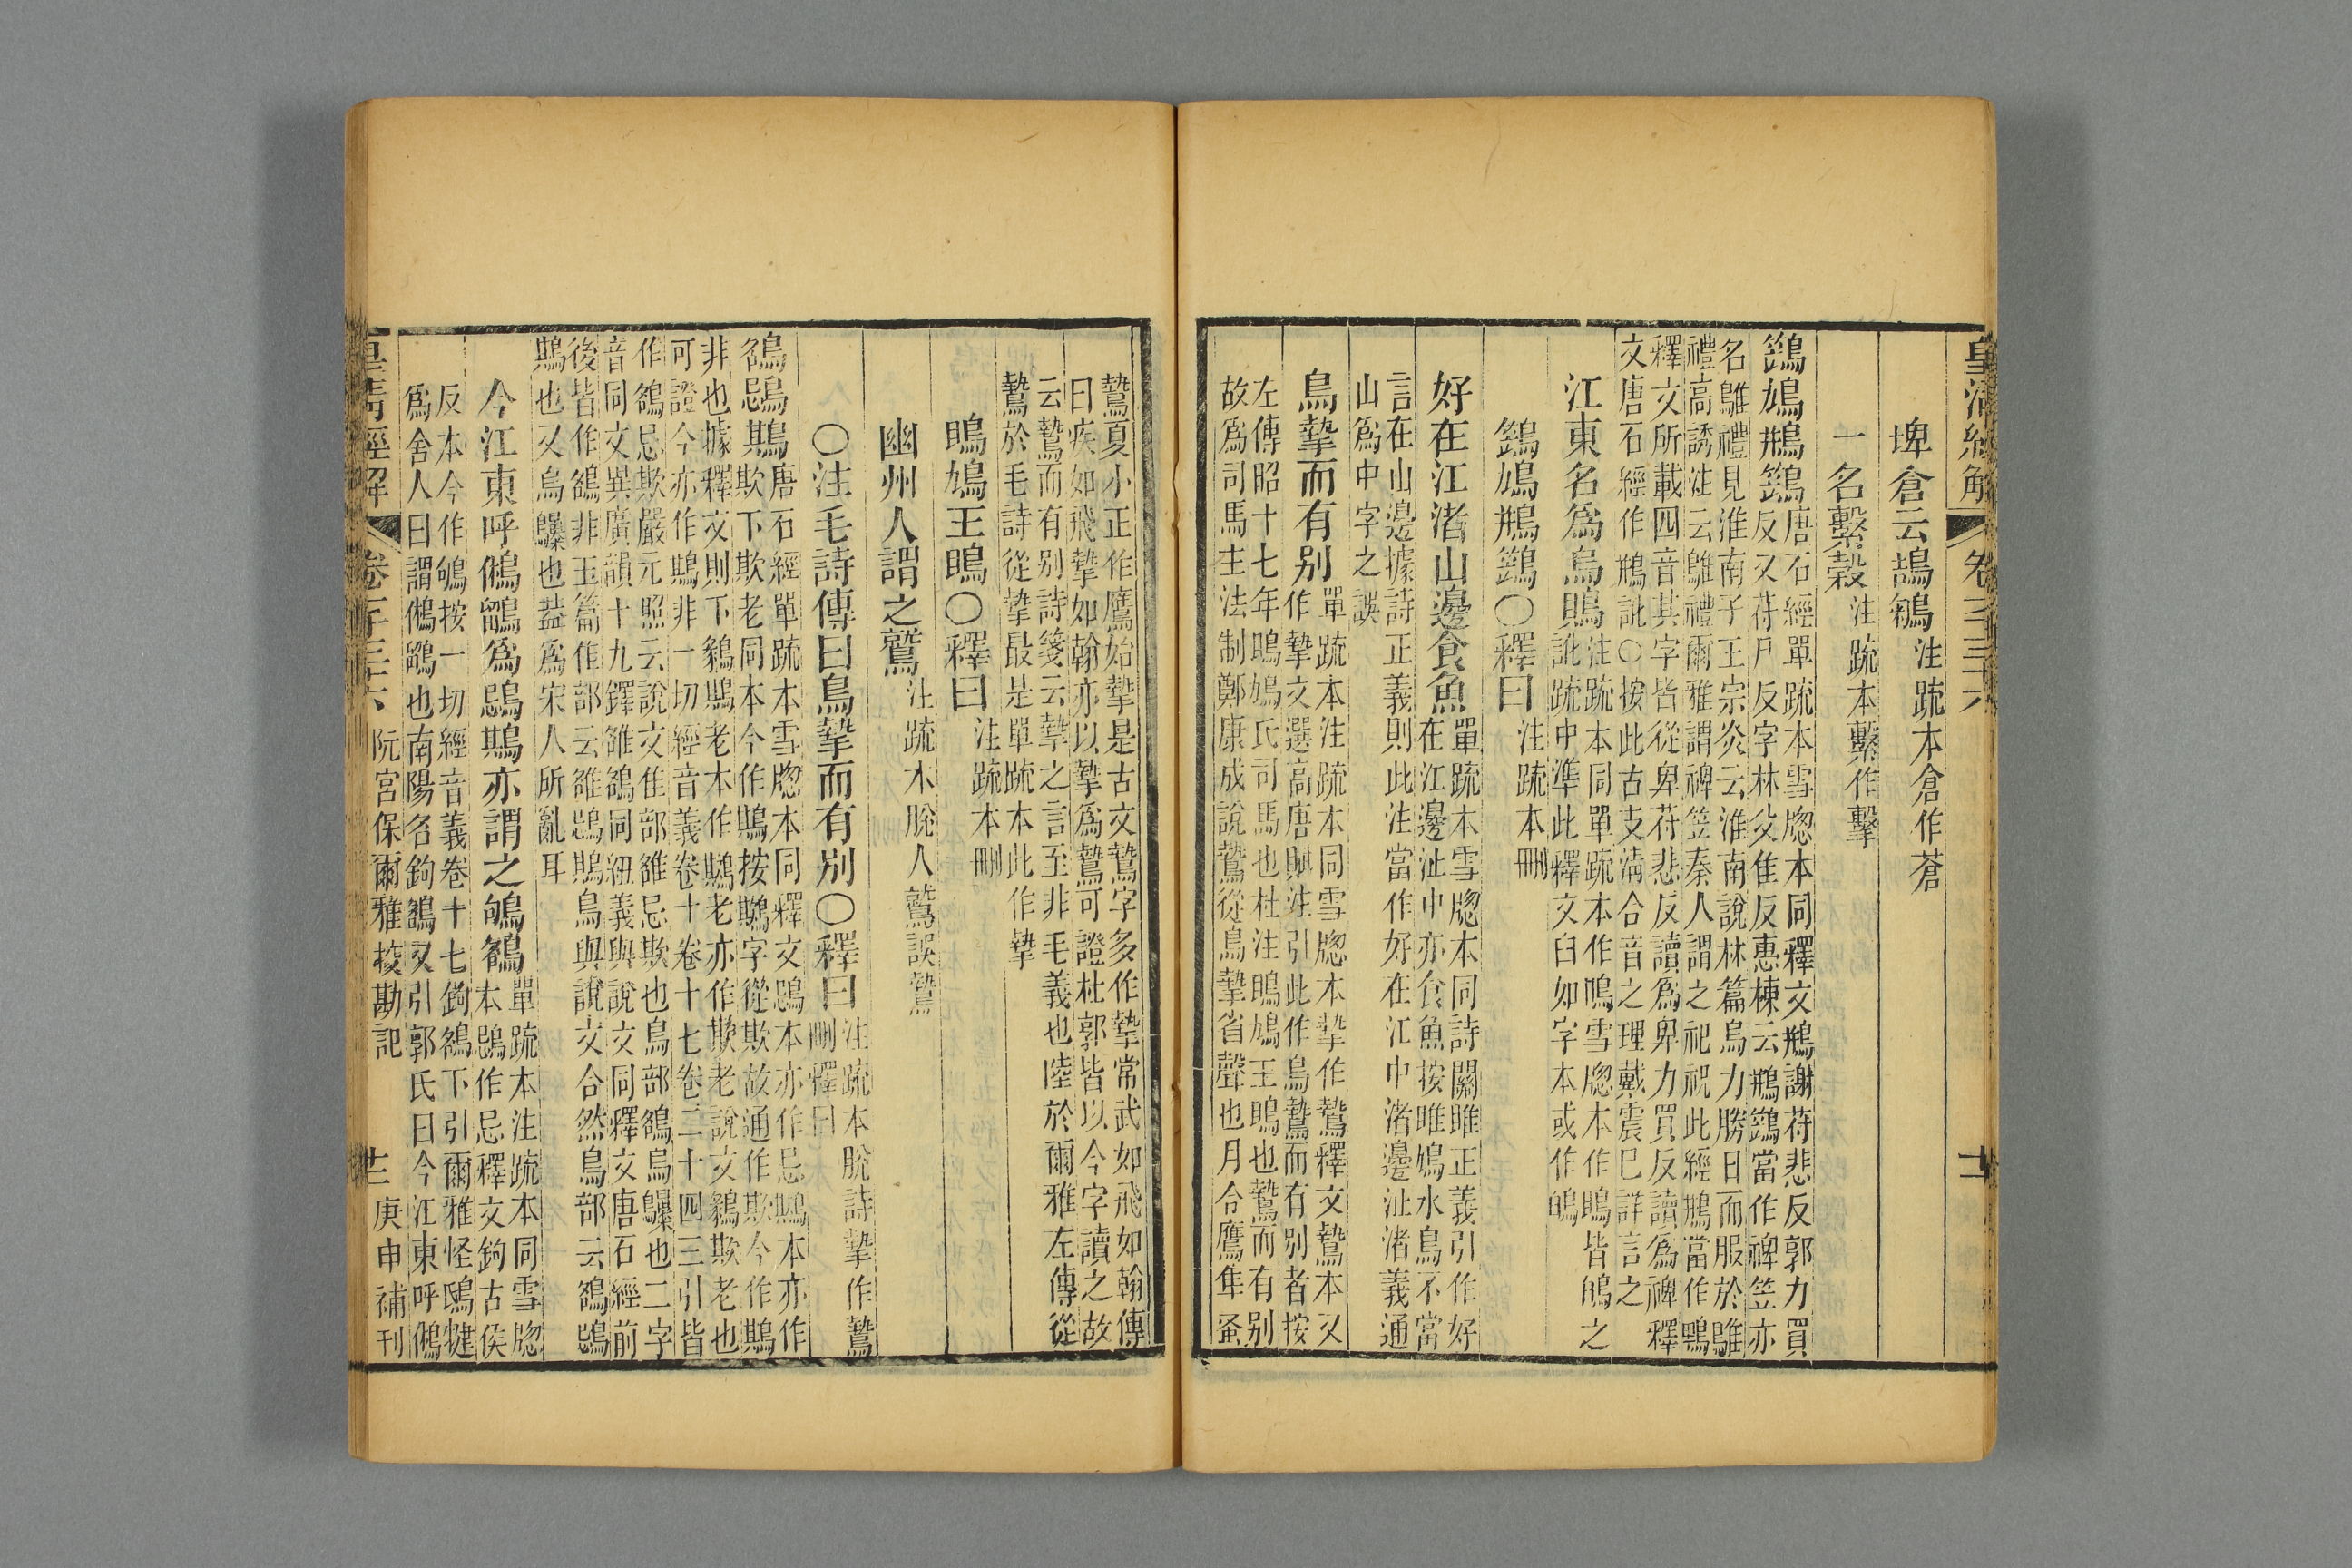 皇清經解 卷一千三十六 十二
埤倉云鵠鵃注疏本倉作蒼
一名繫穀注疏本繫作擊
鷑鳩鵧鷑唐石經單疏本雪牎本同釋文鵧謝苻悲反郭力買
反又苻尸反字林父隹反惠棟云鵧鷑當作裨笠亦
名鵻禮見淮南子王宗炎云淮南說林篇烏力勝日而服於鵻
禮高誘注云鵻禮爾雅謂裨笠秦人謂之祀祝此經鵧當作鵯
釋文所載四音其字皆從卑苻悲反讀爲卑力買反讀爲裨釋
文唐石經作鵧訛○按此古支淸合音之理戴震巳詳言之
江東名爲烏鴡注疏本同單疏本作鴫雪牎本作鴡皆鴝之
訛疏中準此釋文臼如字本或作鴝
鷑鳩鵧鷑○釋曰注疏本刪
好在江渚山邊食魚單疏本雪牎本同詩關雎正義引作好
在江邊沚中亦食魚按雎鳩水鳥不當
言在山邊據詩正義則此注當作好在江中渚邊沚渚義通
山爲中字之誤
鳥摯而有别單疏本注疏本同雪牎本摯作鷙釋文鷙本又
作摯文選高唐賦注引此作鳥鷙而有别者按
左傳昭十七年鴡鳩氏司馬也杜注鴡鳩王鴡也鷙而有别
故爲司馬主法制鄭康成說鷙從鳥摯省聲也月令鷹隼蚤
鷙夏小正作鷹始摯是古文鷙字多作摯常武如飛如翰傳
曰疾如飛摯如翰亦以摯爲鷙可證杜郭皆以今字讀之故
云鷙而有别詩箋云摯之言至非毛義也陸於爾雅左傳從
鷙於毛詩從摯最是單疏本此作摯
鴡鳩王鴡○釋曰注疏本刪
幽州人謂之鷲注疏本脫人鷲誤鷙
○注毛詩傳曰鳥摯而有别○釋曰注疏本脫詩摯作鷙
刪釋曰
鵅鵋䳢唐石經單疏本雪牎本同釋文鵋本亦作忌䳢本亦作
欺下欺老同本今作䳢按䳢字從欺故通作欺今作䳢
非也據釋文則下鶨䳢老本作䳢老亦作欺老說文鶨欺老也
可證今亦作䳢非一切經音義卷十卷十七卷二十四三引皆
作鵅忌欺嚴元照云說文隹部雒忌欺也鳥部鵅烏鸔也二字
音同文異廣韻十九鐸雒鵅同紐義與說文同釋文唐石經前
後皆作鵅非玉篇隹部云雒鵋䳢鳥與說文合然鳥部云鵅鵋
䳢也又烏鸔也葢爲宋人所亂耳
今江東呼鵂鶹爲鵋䳢亦謂之鴝鵅單疏本注疏本同雪牎
本鵋作忌釋文鉤古侯
反本今作鴝按一切經音義卷十七鉤鵅下引爾雅怪鴟犍
爲舍人曰謂鵂鶹也南陽名鉤鵅又引郭氏曰今江東呼鵂
皇清經解 卷一千三十六 阮宮保爾雅挍勘記 十二 庚申補刊